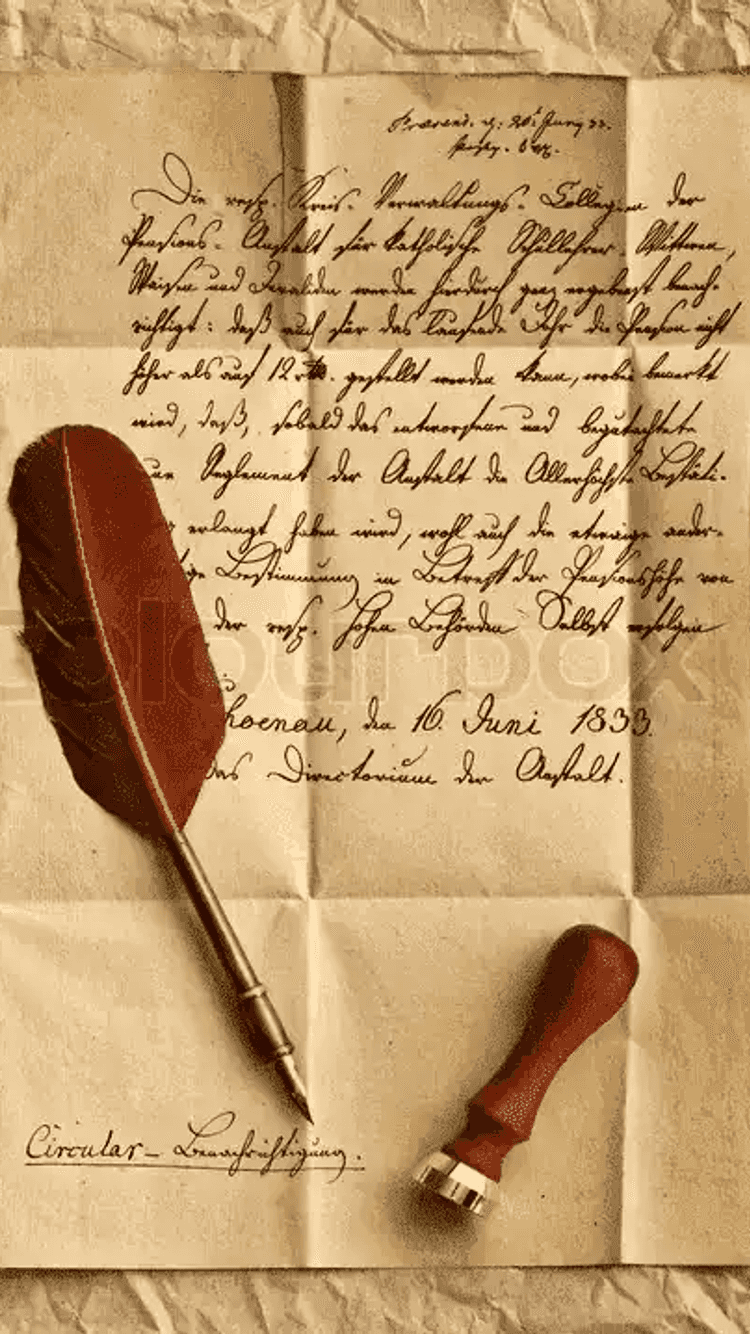 Praesent. d. 20t Juny 33.
Die resp. Kreis-Verwaltungs-Collegien der
Pensions-Anstalt für katholische Schullehrer-Wittwen,
Waisen und Invaliden werden hierdurch ganz ergebenst benach-
richtigt: daß auch für das laufende Jahr die Pension nicht
höher als auf 12 rtl. gestellt werden kann, wobei bemerkt
wird, daß, sobald das entworfene und begutachtete
ue Reglement der Anstalt die Allerhöchste Bestäti-
g erlangt haben wird, wohl auch die etwaige ander-
ige Bestimmung in Betreff der Pensionshöhe von
der resp. hohen Behörden Selbst erfolgen
hoenau, den 16. Juni 1833.
Das Directorium der Anstalt.
Circular-Benachrichtigung.
colourbox